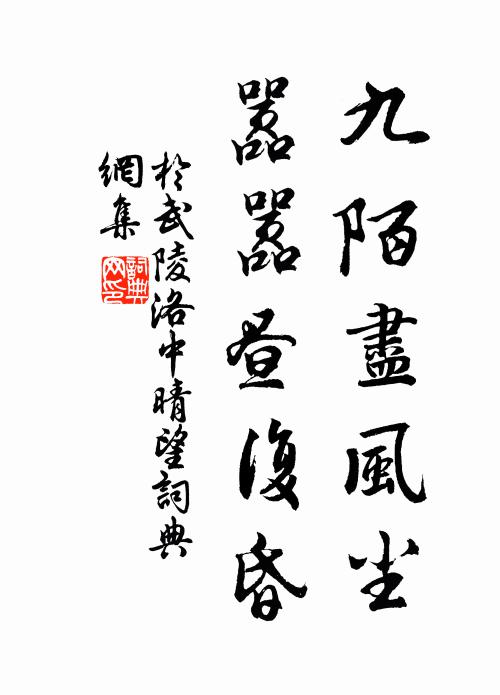 九陌盡風尘
嚣嚣昼復昏
於武陵洛中晴望詞典
網集
詞典
网印